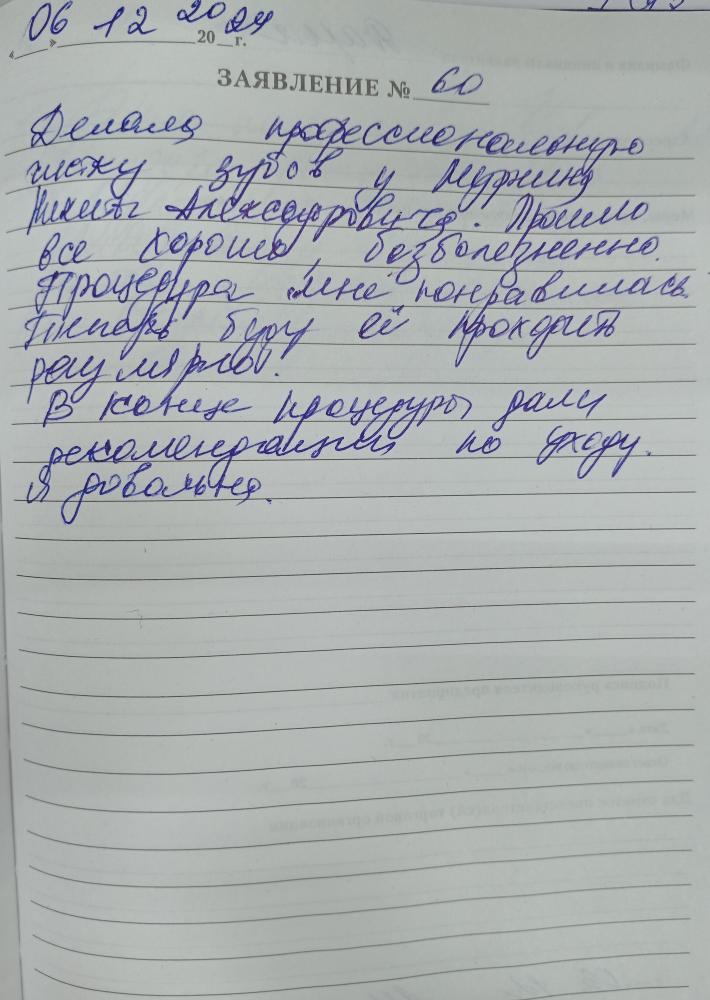 06 12 2024
« » 20 г.
ЗАЯВЛЕНИЕ № 60
Делала профессиональную
чистку зубов у
Никиты Александровича. Прошло
все хорошо, безболезненно.
Процедура мне понравилась.
Теперь буду её проходить
регулярно.
В конце процедуры дали
рекомендации по уходу.
Я довольна.